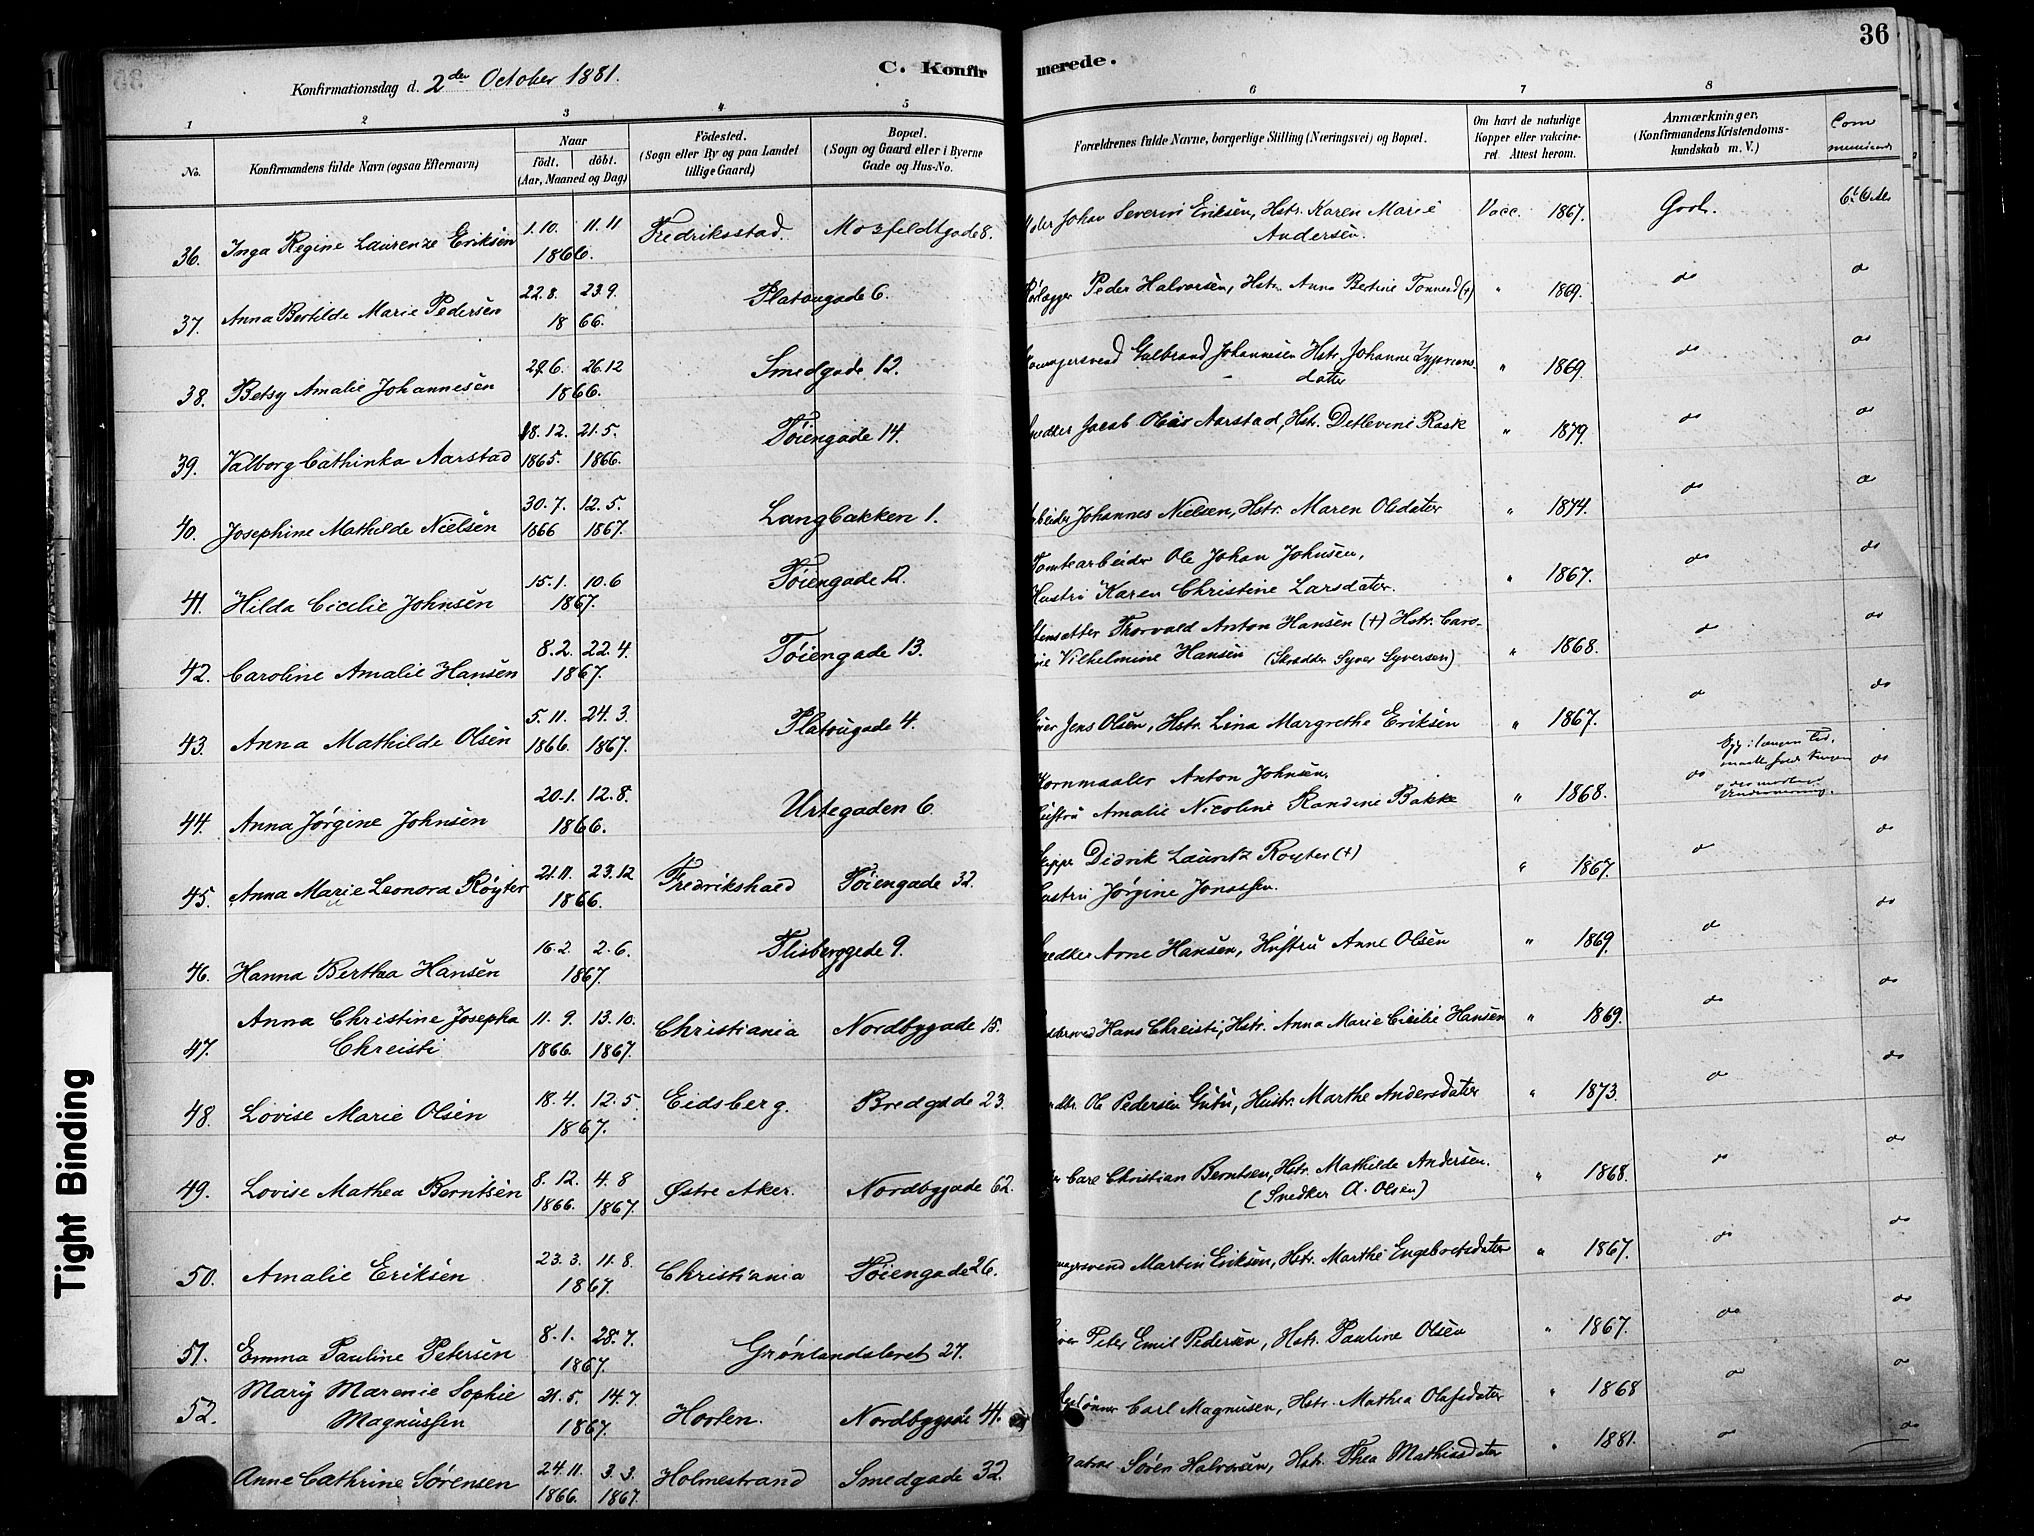 36
Konfirmationsdag d. 2den October 1881.
C. Konfirmerede.
1 2 3 4 5 6 7 8
No. Konfirmandens fulde Navn (ogsaa Efternavn) Naar født. døbt. (Aar, Maaned og Dag) Fødested. (Sogn eller By og paa Landet tillige Gaard) Bopæl. (Sogn og Gaard eller i Byerne Gade og Hus-No. Forældrenes fulde Navne, borgerlige Stilling (Næringsvei) og Bopæl. Om havt de naturlige Kopper eller vakcineret. Attest herom. Anmærkninger, (Konfirmandens Kristendomskundskab m. V.)
36. Inga Regine Laurenze Eriksen 1.10. 11.11 1866. Fredriksstad. Mosfeldtgade 8. Johan Severin Eriksen, Hstr. Karen Marie Andersen. Vacc. 1867. Godt.
37. Anna Bertilde Marie Pedersen 22.8. 23.9. 1866. Platougade 6. Peder Halvorsen, Hstr. Anna Bertine (+) " 1869. do
38. Betsy Amalie Johannesen 29.6. 26.12 1866. Smedgade 12. Johannesen Hstr. Johanne datter " 1869. do do
39. Valborg Cathinka Aarstad 18.12. 1865. 21.5. 1866. Tøiengade 14. Jacob Olai Aarstad, Hstr. Detlevine Rask " 1879. do do
40. Josephine Mathilde Nielsen 30.7. 1866 12.5. 1867. Langbakken 1. Johannes Nielsen, Hstr. Maren Olsdater " 1874. do
41. Hilda Cicelie Johnsen 15.1. 10.6 1867. Tøiengade 12. Tomtearbeider Ole Johan Johnsen, Hustru Karen Christine Larsdater. " 1867. do do
42. Caroline Amalie Hansen 8.2. 22.4. 1867. Tøiengade 13. Thorvald Anton Hansen (+) Hstr. Caroline Vilhelmine Hansen (Skrædder Syver Syversen) " 1868. do do
43. Anna Mathilde Olsen 5.11. 1866. 24.3. 1867. Platougade 4. Jens Olsen, Hstr. Lina Margrethe Eriksen " 1867. do
44. Anna Jørgine Johnsen 20.1. 12.8. 1866. Urtegaden 6. Kornmaaler Anton Johnsen, Hustru Amalie Nicoline Randine Bakke " 1868. do do
45. Anna Marie Leonora Røyter 21.11. 23.12 1866. Fredrikshald Tøiengade 32. Didrik Lauritz Royter (+) Hustru Jørgine Jonassen. " 1867. do
46. Hanna Berthea Hansen 16.2. 2.6. 1867. Flisberggade 9. Arne Hansen, Hustru Anne Olsen " 1869. do
47. Anna Christine Josepha Chreisti 11.9. 1866. 13.10. 1867. Christiania Nordbygade 15. Hans Chreisti, Hstr. Anna Marie Cicilie Hansen " 1869. do do
48. Lovise Marie Olsen 18.4. 12.5. 1867. Eidsberg. Bredgade 23. Ole Pedersen Gutu, Hustr. Marthe Andersdater " 1873. do
49. Lovise Mathea Berntsen 8.12. 1866. 4.8 1867. Østre Aker. Nordbygade 62. Carl Christian Berntsen, Hstr. Mathilde Andersen. (Snedker A. Olsen) " 1868. do do
50. Amalie Eriksen 23.3. 11.8. 1867. Christiania Tøiengade 26. Martin Eriksen, Hstr. Marthe Engebretsdater " 1867. do do
51. Emma Pauline Petersen 8.1. 28.7. 1867. Grønlandsleret 27. Peter Emil Pedersen, Hstr. Pauline Olsen " 1867. do do
52. Mary Marenie Sophie Magnussen 21.5. 14.7. 1867. Horten. Nordbygade 41. Carl Magnusen, Hstr. Mathea Olafsdater " 1868 do
Anne Cathrine Sørensen 24.11. 1866. 3.3. 1867. Holmestrand Smedgade 32. Matros Søren Halvorsen, Hstr. Thea Mathiasdater " 1881. do
Tight Binding